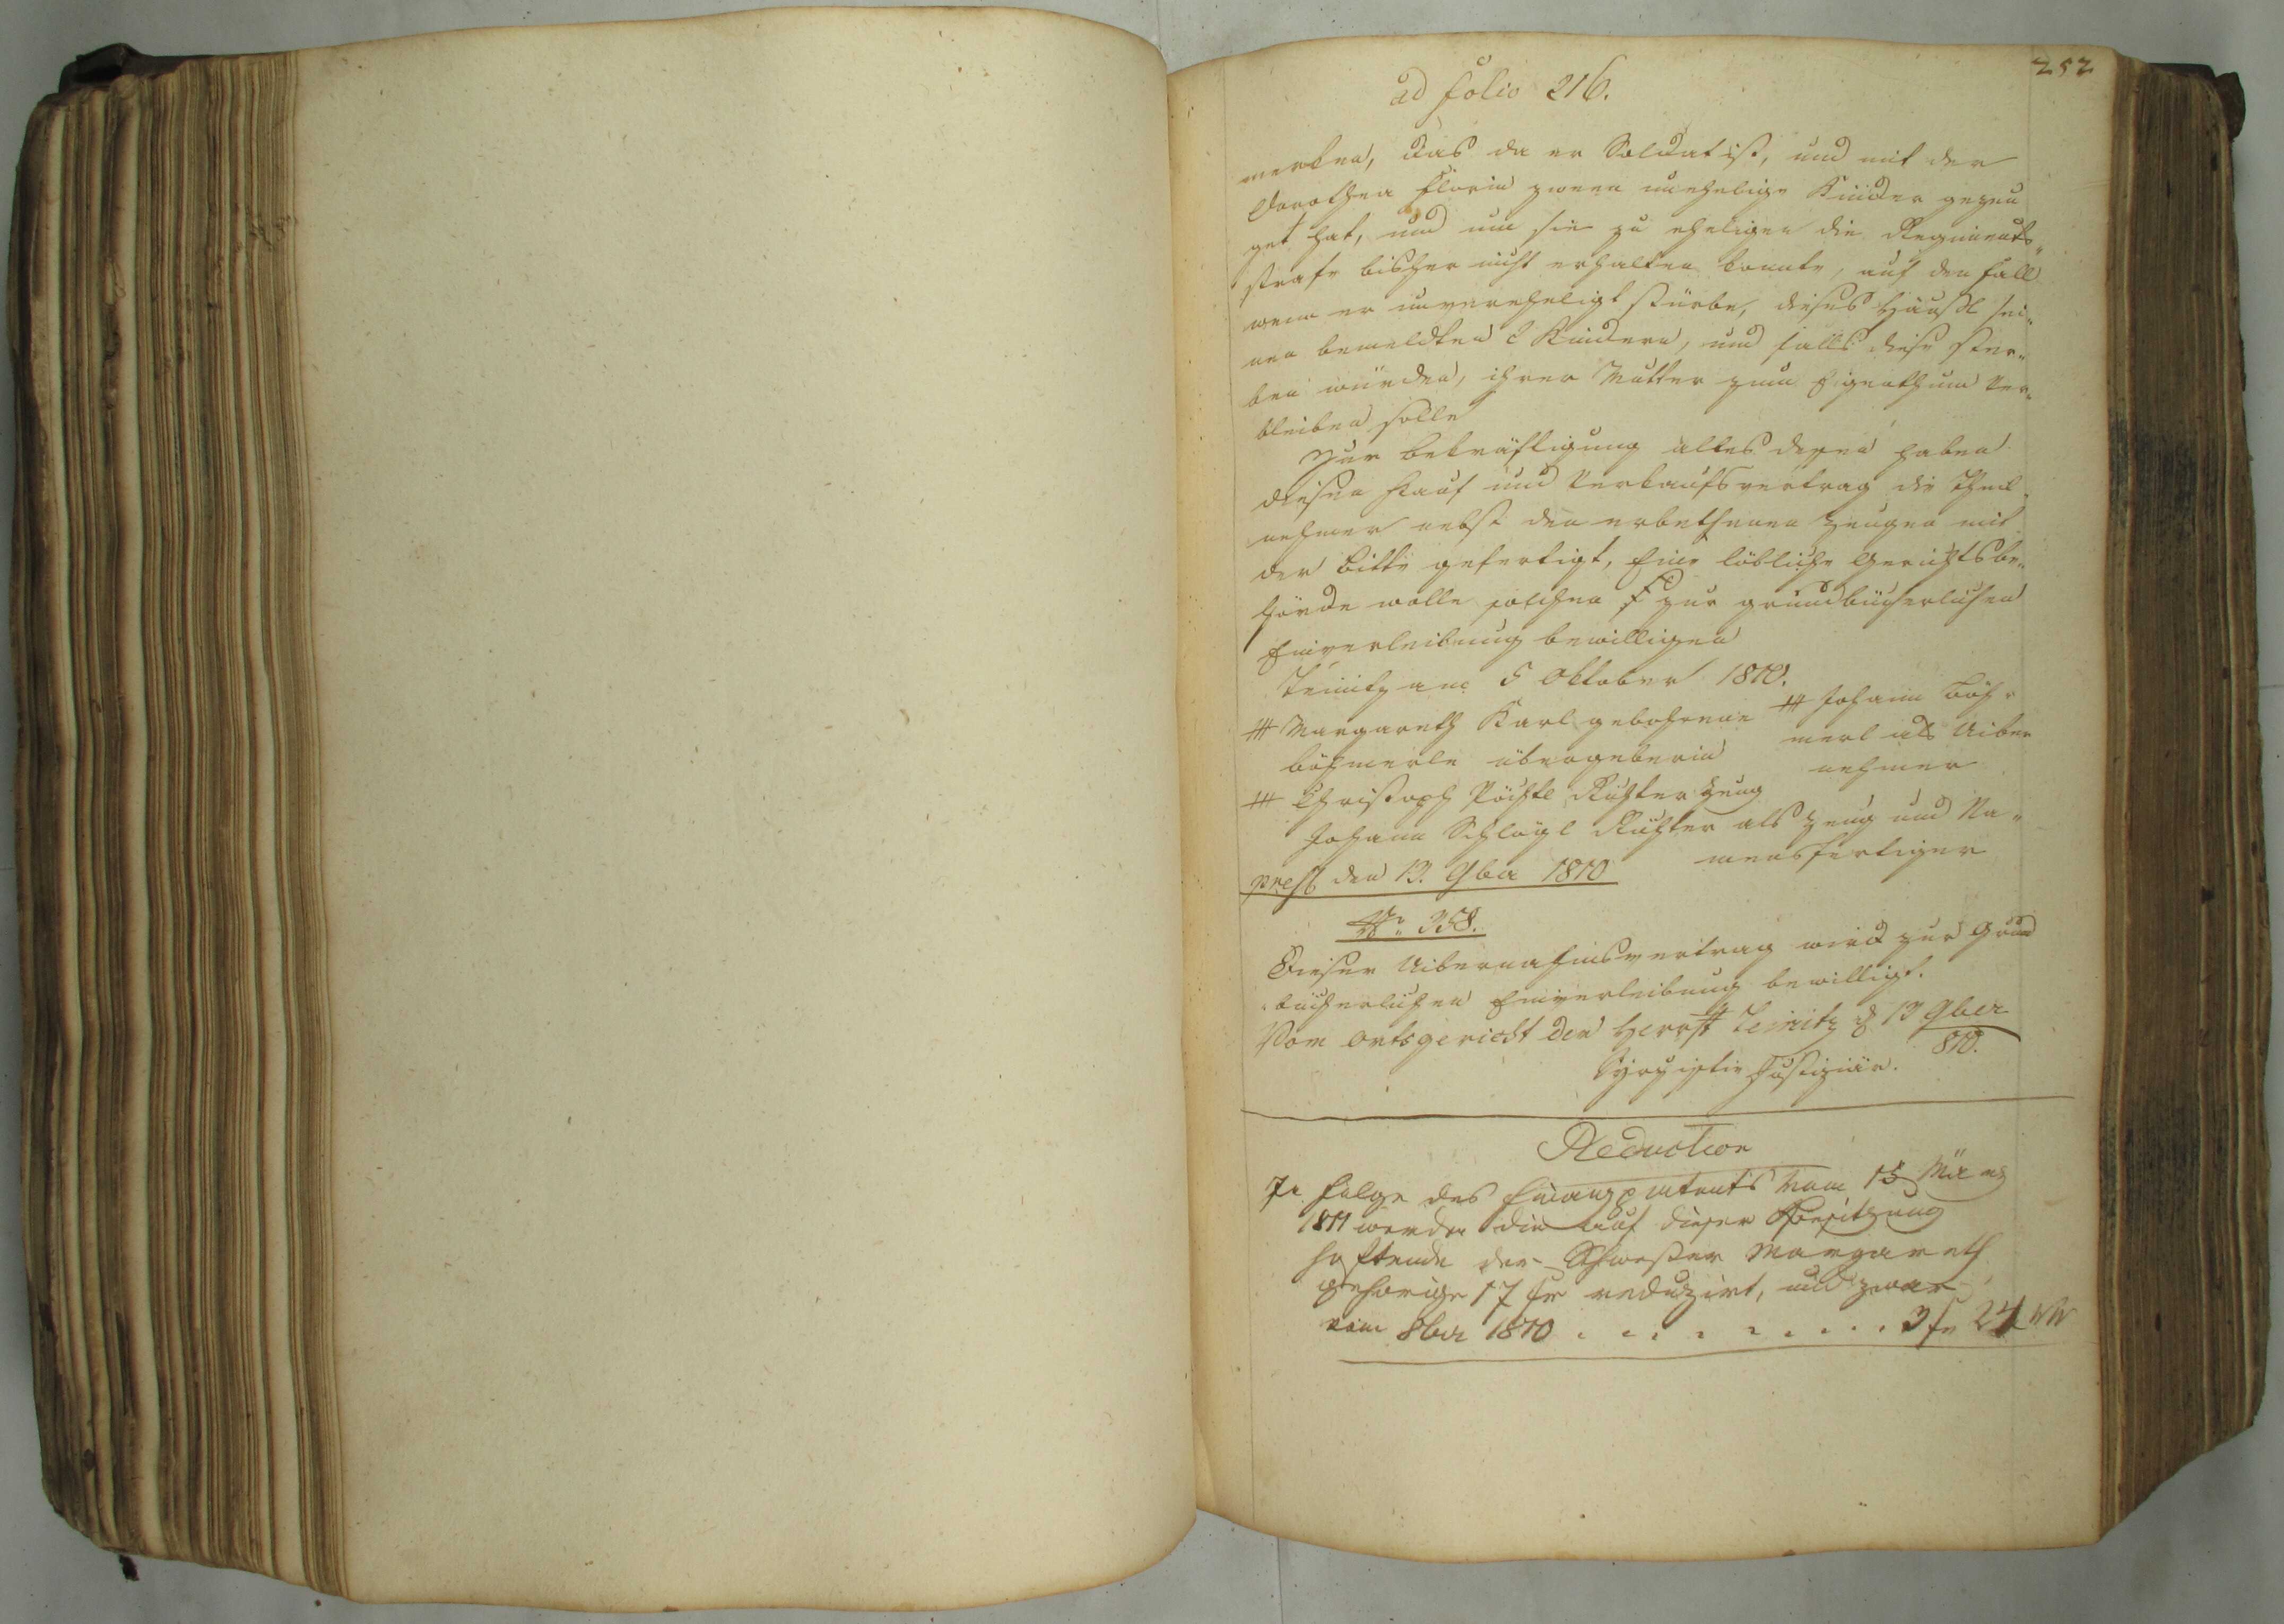 252
ad folio 216.
merken, das da er Soldat ist, und mit der
Dorothea Florin zween unehelige Kinder gezeu
get hat, und um sie zu eheligen die Regiments„
strafe bisher nicht erhalten konnte, auf den Fall
wenn er unvereheligt stürbe, dieses Häusl sei„
nen bemeldten 2 Kindern, und falls diese ster„
ben würden, ihrer Mutter zum Eigenthum ver„
bleiben solle
Zur Bekräftigung alles dessen haben
diesen Kauf und Verkaufsvertrag die Theil
nehmer nebst den erbethenen Zeugen mit
der Bitte gefertigt, Eine löbliche Gerichtsbe„
hörde wolle solchen zur grundbücherlichen
Einverleibung bewilligen
Teinitz am 5 Oktober 1810.
+++ Margareth Karl gebohrene
böhmerle übergeberin
+++ Johann Böh„
merl als Uiber
nehmer
+++ Christoph Pöchtl Richter Zeug
Johann Schlögl Richter als Zeug und Na„
mensfertiger
pres. den 13. 9ber 1810
Nr. 358.
Dieser Uibernahmsvertrag wird zur Grund
bücherlichen Einverleibung bewilligt.
Vom Ortsgericht der Herrst Teinitz d 13 9ber
810.
Justiziär.
Reduction
In Folge des Finanzpatents vom 15 März
1811 werden die auf dieser Besitzung
haftende der Schwester Margareth
gehörige 17 fr reduzirt, und zwar
vom 8ber 1810 . . . . . . . . . . 3 fr 24 WW